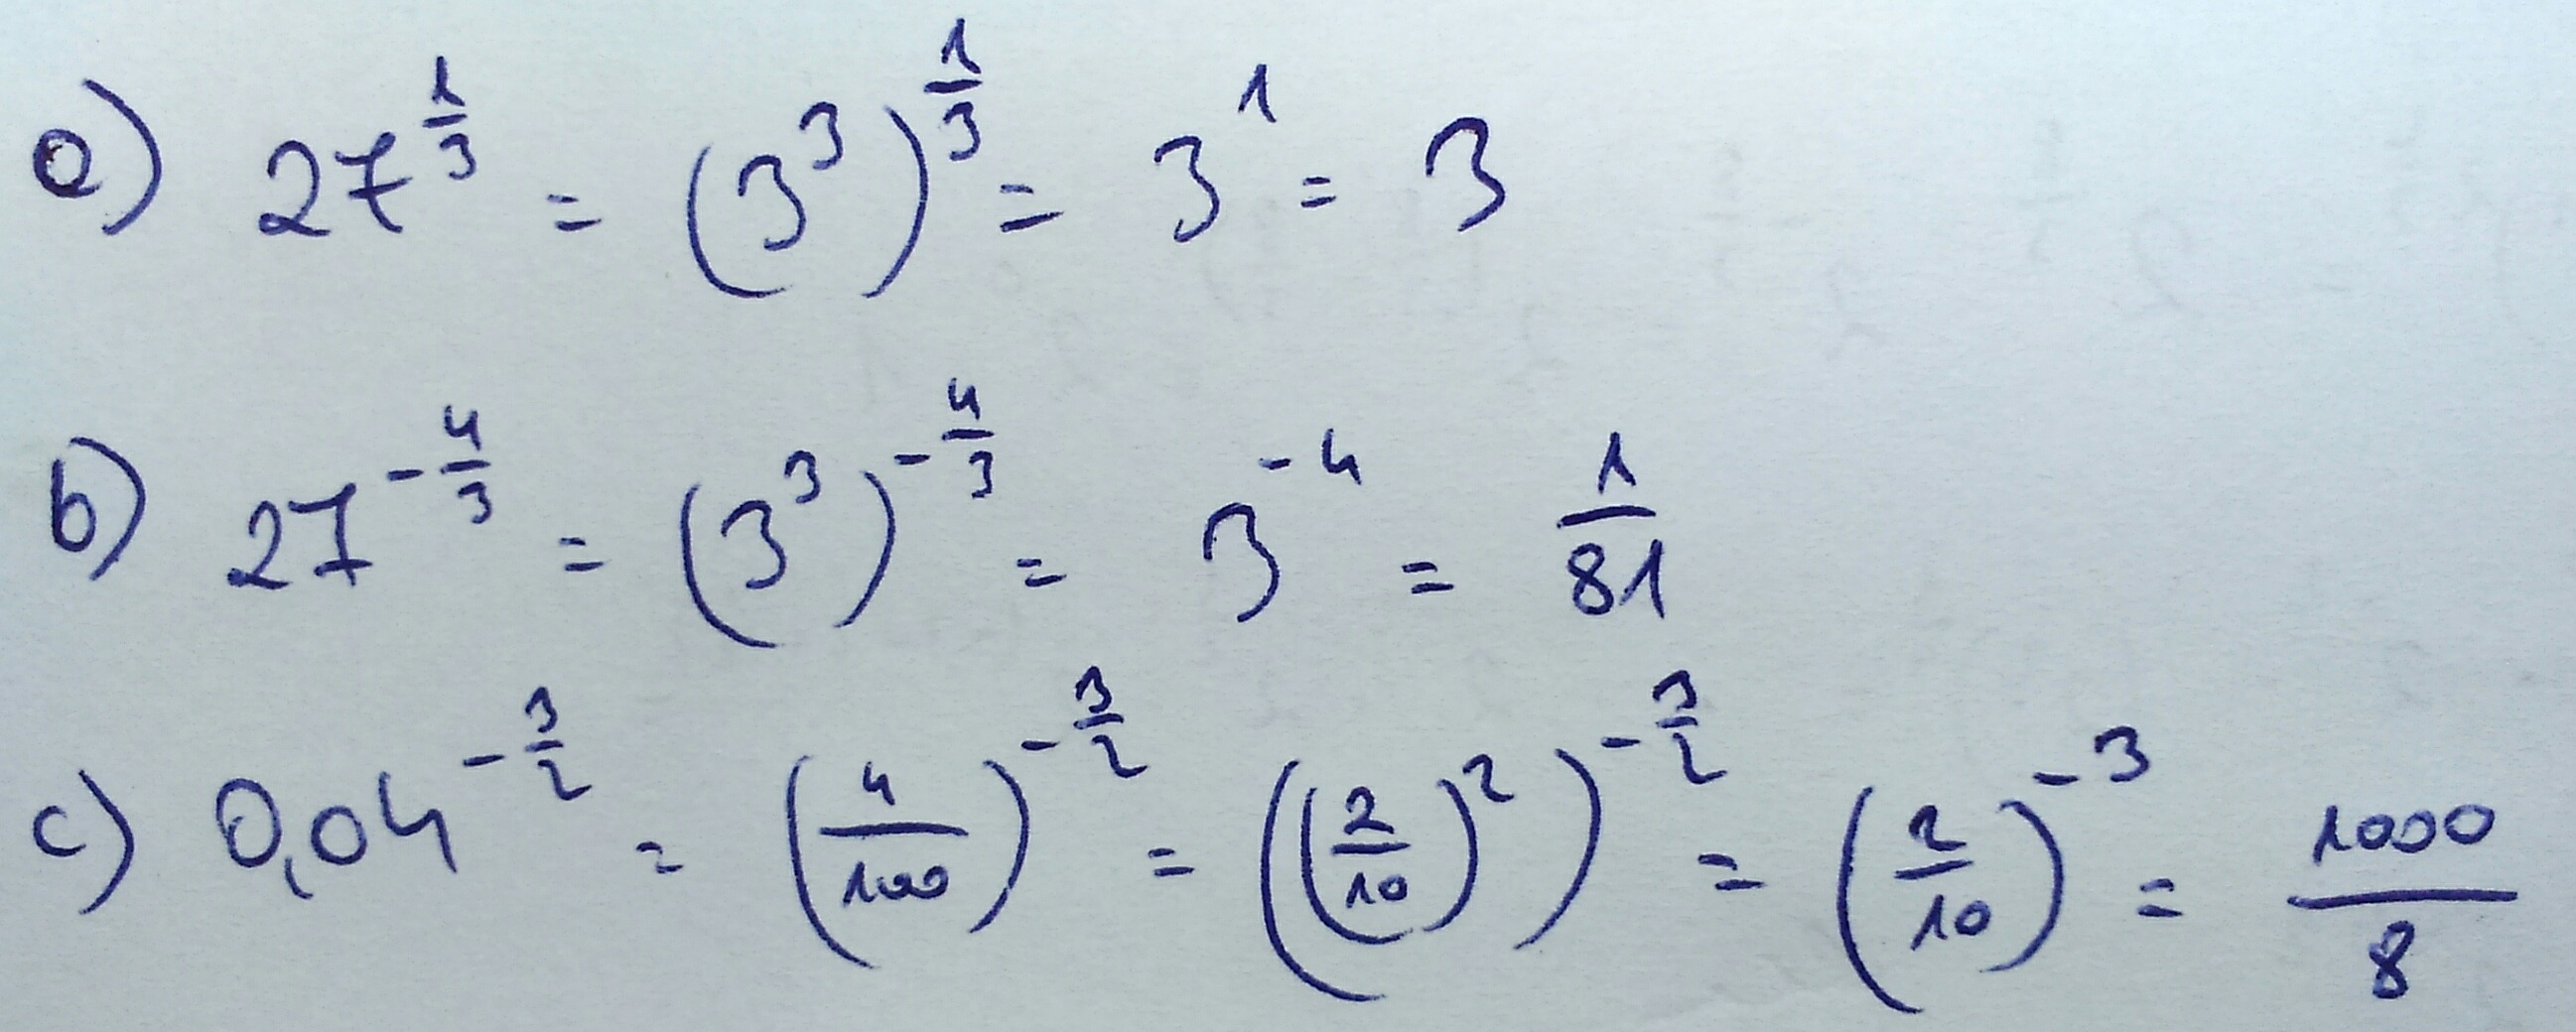 a) 27^{\frac{1}{3}} = (3^3)^{\frac{1}{3}} = 3^1 = 3
b) 27^{-\frac{4}{3}} = (3^3)^{-\frac{4}{3}} = 3^{-4} = \frac{1}{81}
c) 0,04^{-\frac{3}{2}} = (\frac{4}{100})^{-\frac{3}{2}} = ((\frac{2}{10})^2)^{-\frac{3}{2}} = (\frac{2}{10})^{-3} = \frac{1000}{8}